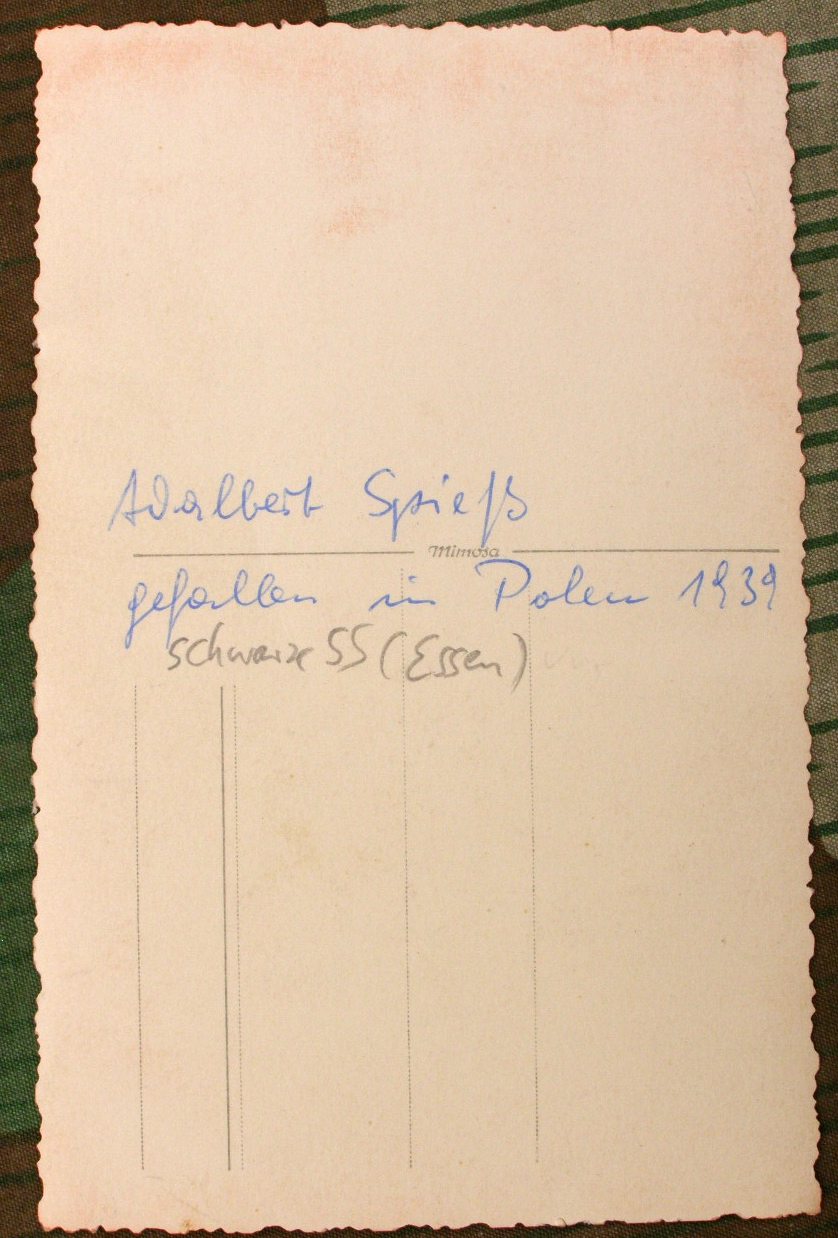 Adalbert Spieß
Mimosa
gefallen in Polen 1939
schwarze SS (Essen)